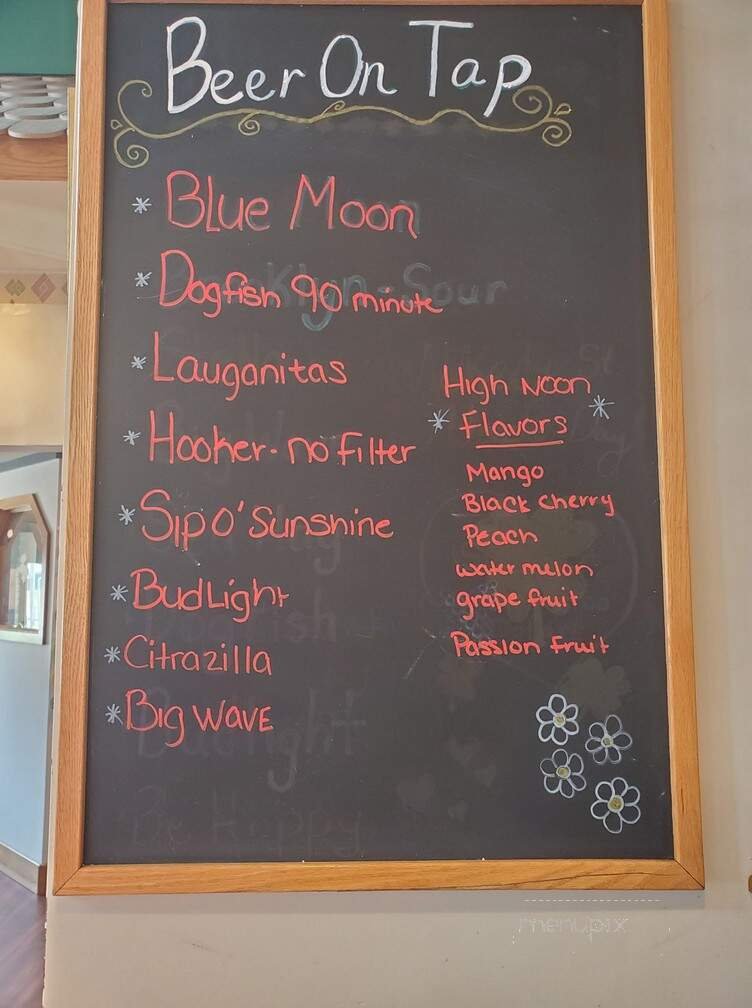 Beer On Tap
* Blue Moon
* Dogfish 90 minute
* Lauganitas
* Hooker - no Filter
* Sip O' Sunshine
* Bud Light
* Citrazilla
* Big WAVE
High Noon
* Flavors *
Mango
Black Cherry
Peach
water melon
grape fruit
Passion Fruit
menupix